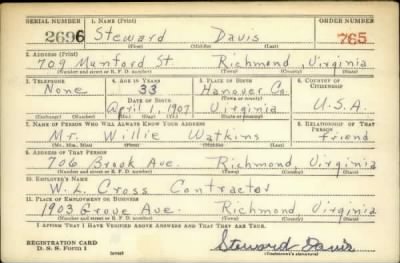 SERIAL NUMBER 1. NAME (Print) ORDER NUMBER
2696 Steward Davis 765
(First) (Middle) (Last)
2. ADDRESS (Print)
709 Munford St. Richmond, Virginia
(Number and street or R. F. D. number) (Town) (County) (State)
3. TELEPHONE 4. AGE IN YEARS 5. PLACE OF BIRTH 6. COUNTRY OF CITIZENSHIP
None 33 Hanover Co.
DATE OF BIRTH (Town or county)
April 1, 1907 Virginia U.S.A.
(Exchange) (Number) (Mo.) (Day) (Yr.) (State or country)
7. NAME OF PERSON WHO WILL ALWAYS KNOW YOUR ADDRESS 8. RELATIONSHIP OF THAT PERSON
Mr. Willie Watkins friend
(Mr., Mrs., Miss) (First) (Middle) (Last)
9. ADDRESS OF THAT PERSON
706 Brook Ave. Richmond, Virginia
(Number and street or R. F. D. number) (Town) (County) (State)
10. EMPLOYER'S NAME
W. L. Cross Contractor
11. PLACE OF EMPLOYMENT OR BUSINESS
1903 Grove Ave. Richmond Virginia
(Number and street or R. F. D. number) (Town) (County) (State)
I AFFIRM THAT I HAVE VERIFIED ABOVE ANSWERS AND THAT THEY ARE TRUE.
REGISTRATION CARD Steward Davis
D. S. S. Form 1 (Registrant's signature)